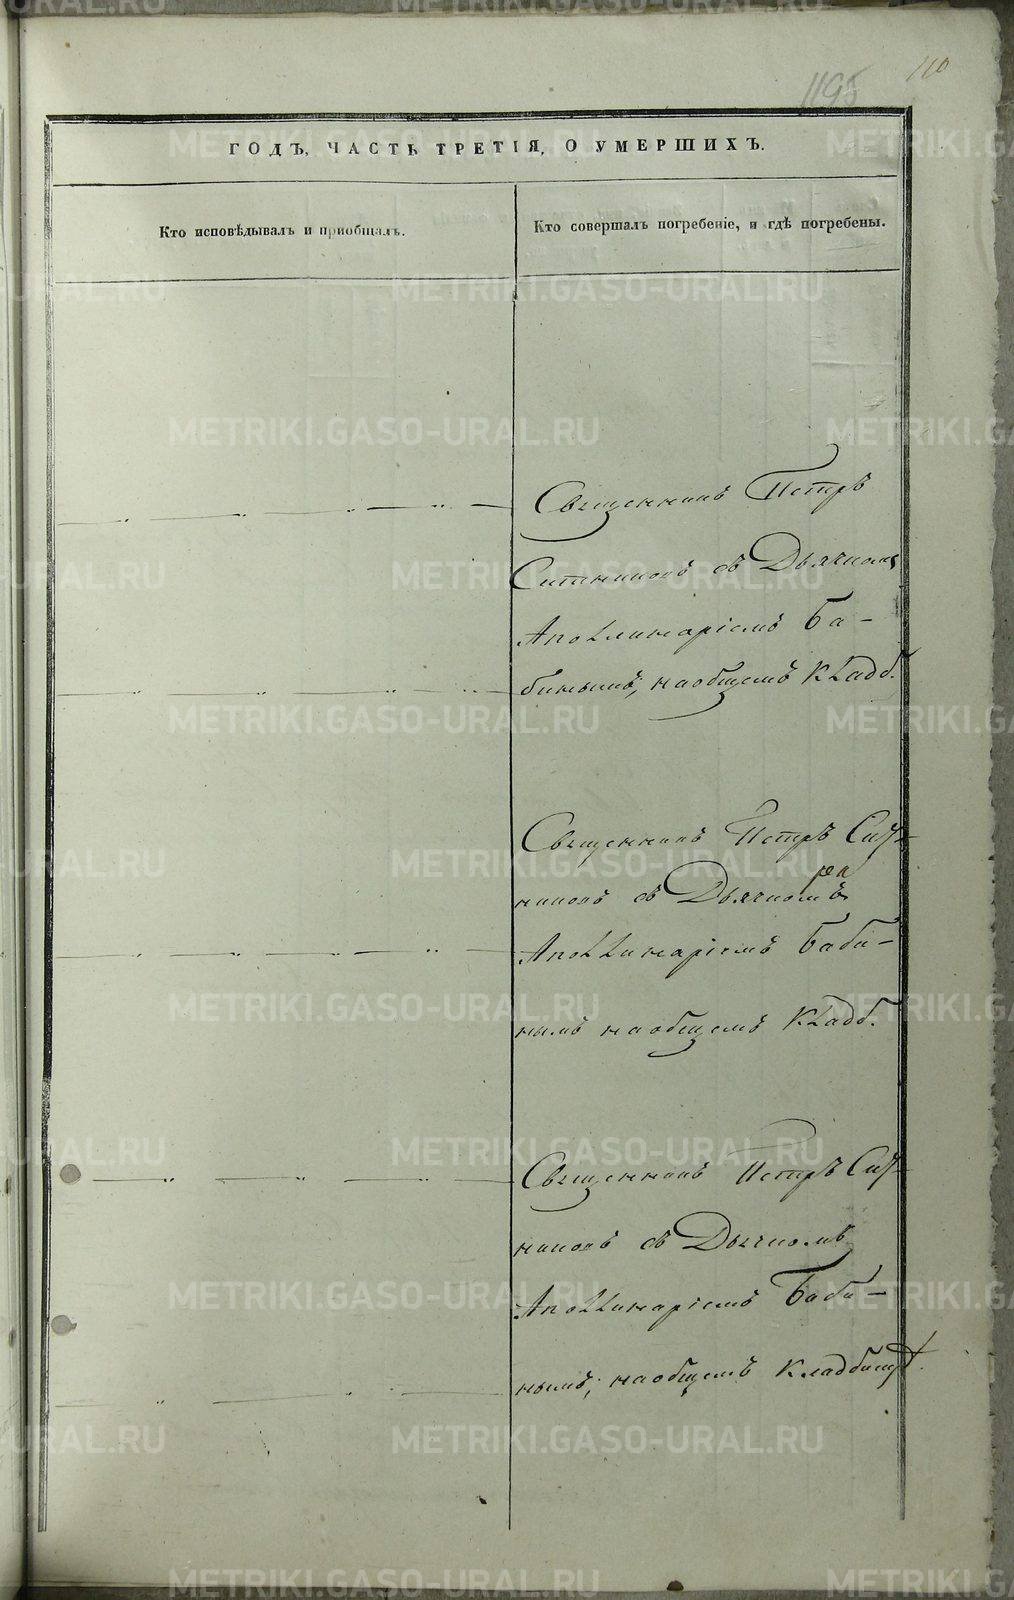 110
1195
ГОДЪ, ЧАСТЬ ТРЕТІЯ, О УМЕРШИХЪ.
Кто исповѣдывалъ и пріобщалъ.
Кто совершалъ погребеніе, и гдѣ погребены.
Священникъ Петръ
съ Дьячкомъ
Аполлинаріемъ Ба-
бинымъ, на общемъ Кладб.
Священникъ Петръ
съ Дьячкомъ
Аполлинаріемъ Баби-
нымъ на общемъ Кладб.
Священникъ Петръ
съ Дьячкомъ
Аполлинаріемъ Баби-
нымъ, на общемъ Кладбищѣ.
METRIKI.GASO-URAL.RU